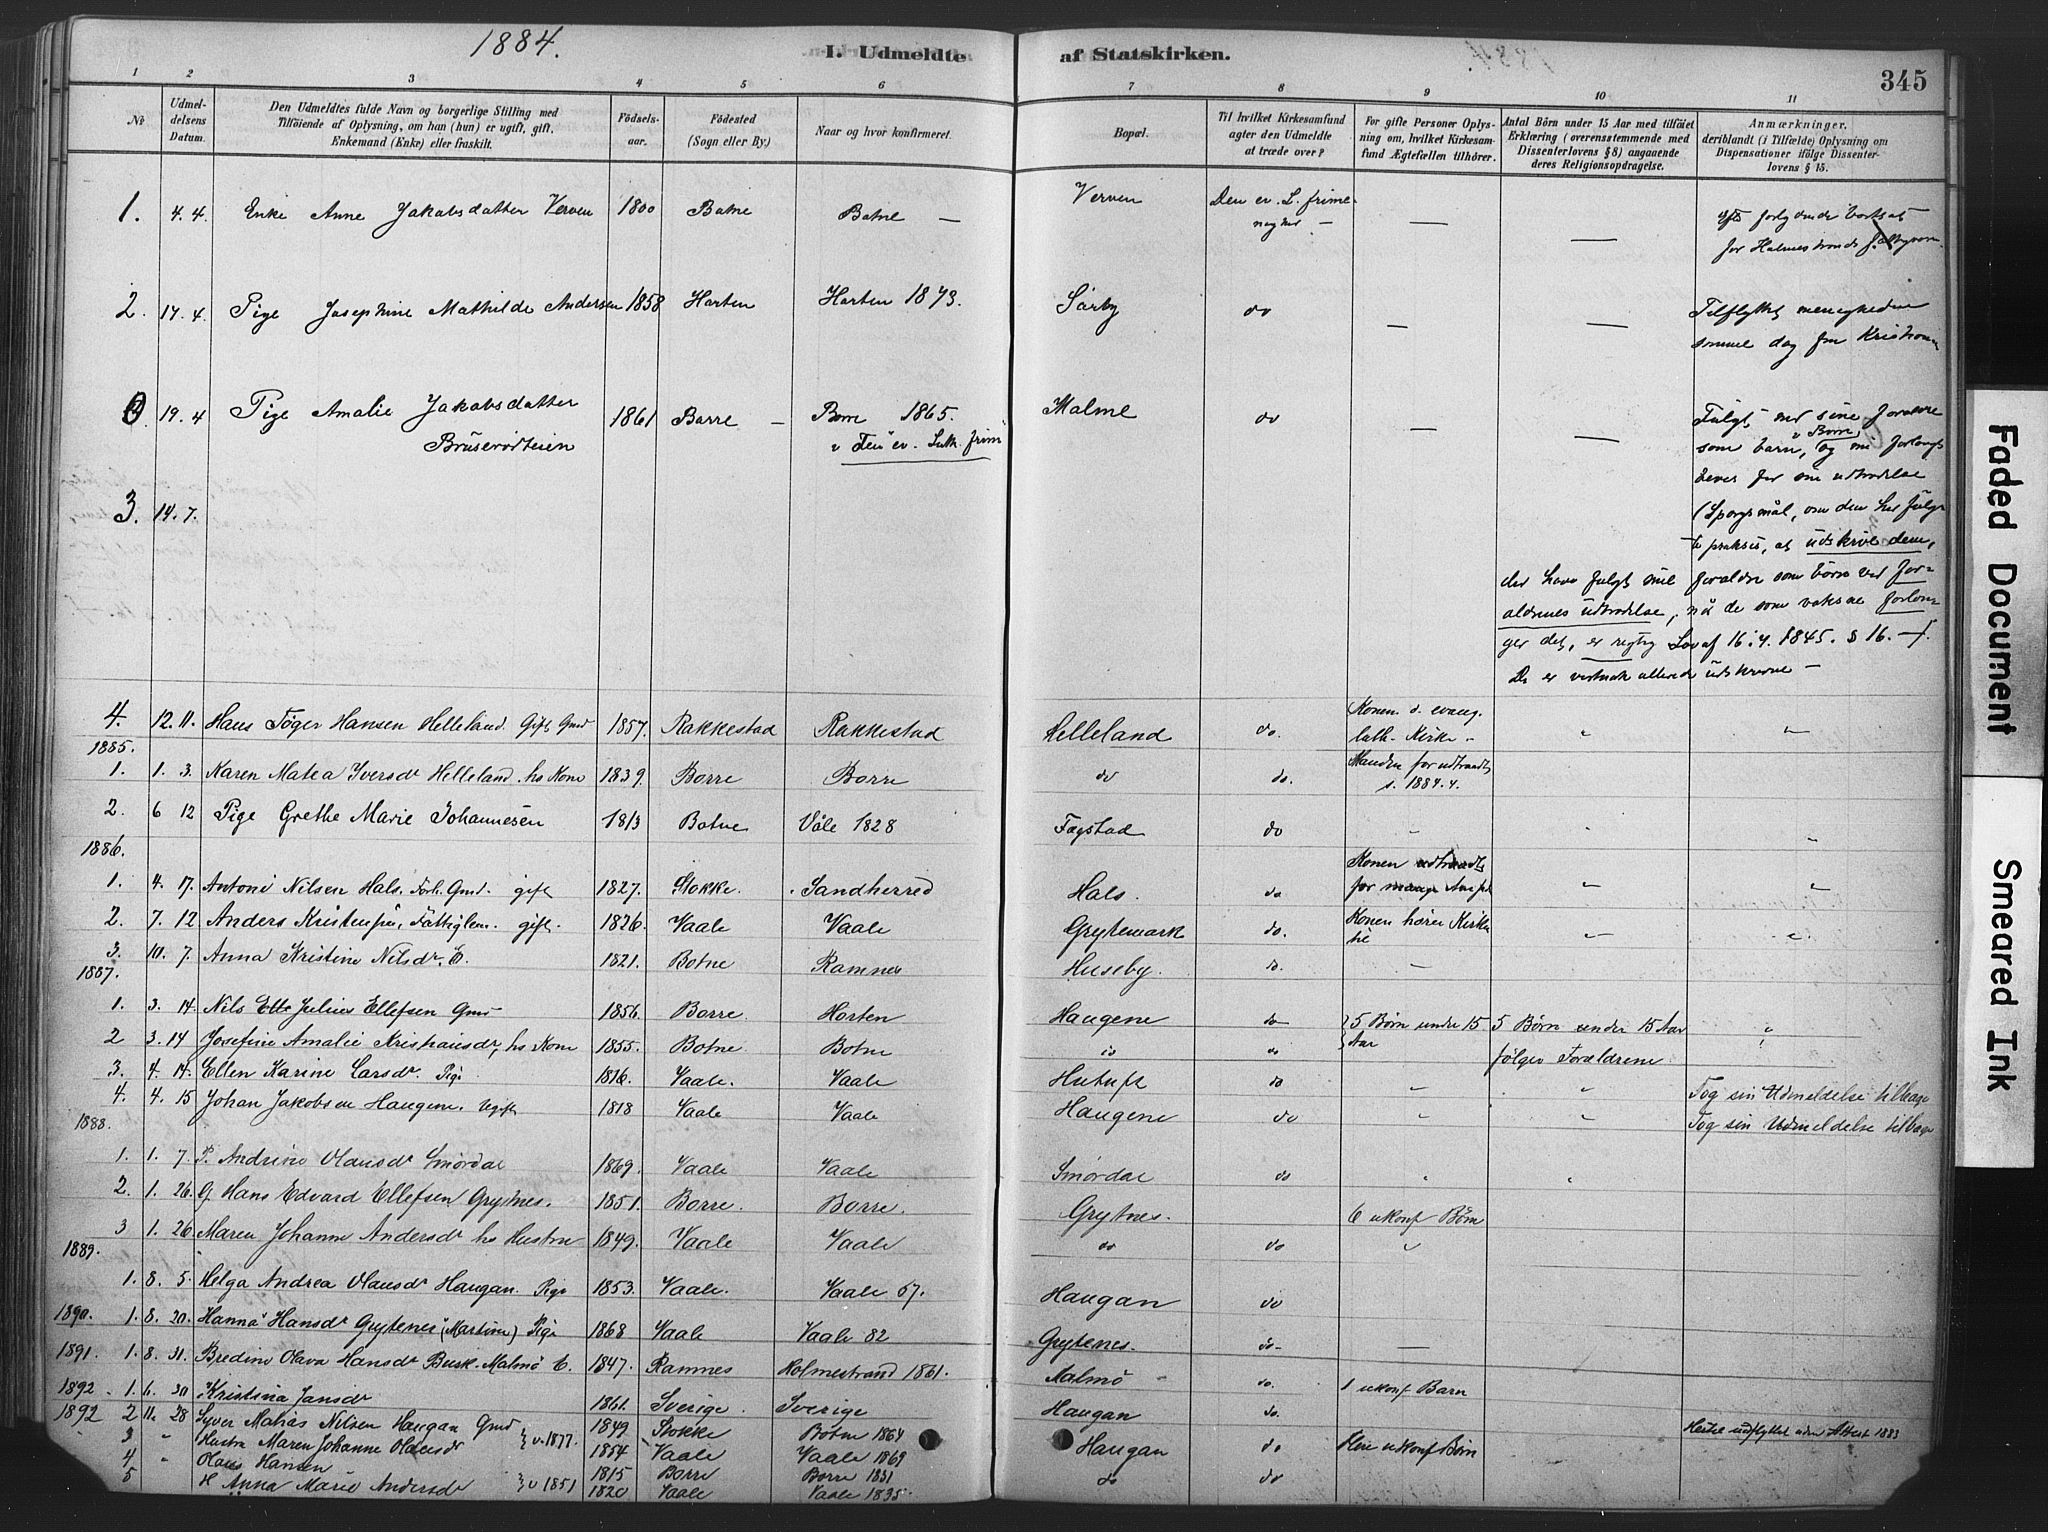 1884.
I. Udmeldte af Statskirken.
345
1 2 3 4 5 6 7 8 9 10 11
No
Udmeldelsens Datum.
Den Udmeldtes fulde Navn og borgerlige Stilling med Tilföiende af Oplysning, om han (hun) er ugift, gift, Enkemand (Enke) eller fraskilt.
Födselsaar.
Födested (Sogn eller By.)
Naar og hvor konfirmeret.
Bopæl.
Til hvilket Kirkesamfund agter den Udmeldte at træde over?
For gifte Personer Oplysning om, hvilket Kirkesamfund Ægtefællen tilhörer.
Antal Börn under 15 Aar med tilföiet Erklæring (overensstemmende med Dissenterlovens § 8) angaaende deres Religionsopdragelse.
Anmærkninger, deriblandt (i Tilfælde) Oplysning om Dispensationer ifölge Dissenterlovens § 15.
1. 4. 4. Enke Anne Jakobsdatter Verven 1800 Botne Botne — Verven Den ev. L. frimenighed — — — for Holmestrands
2. 17. 4. Pige Josephine Mathilde Andersen 1858 Horten Horten 1873. Sørby do — — Tilflyttet menigheden
samme dag fra
19. 4 Pige Amalie Jakobsdatter 1861 Borre — Borre 1865. Malmø do — — Fulgt med sine forældre
Brüserødteien v den ev. Luth. frim som barn, v Borre og
for sin udtrædelse
3. 14. 7. (Spørgsmål, om den her
praksis, at udskrive dem,
der have fulgt sine forældre som børn ved forældrenes udtrædelse, når de som voksne forlanger det, er rigtig Lov af 16. 7. 1845. § 16. —
De er allerede udskrevne —
4. 12. 11. Hans Tøger Hansen Helleland. Gift Gmd 1857. Rakkestad Rakkestad Helleland do. Konen d. evang. luth. Kirke — " "
1885.
1. 1. 3. Karen Matea Iversdr Helleland. hs Kone 1839. Borre Borre do do. Manden før udtraadt s. 1884. 4.
2. 6 12 Pige Grethe Marie Johannesen 1813 Botne Våle 1828 Fagstad do " " "
1886.
1. 4. 17. Antoni Nilsen Hals. Forh. Gmd. gift 1827. Stokke. Sandherred Hals. do Konen udtraadt for mange Aar " "
2. 7. 12 Anders Kristensen, Fattiglem. gift. 1826. Vaale Vaale Grytemark do. Konen hører Kirken til " "
3. 10. 7. Anna Kristine Nilsdr. E. 1821. Botne Ramnes Huseby. do. —
1887.
1. 3. 14. Nils Julius Ellefsen Gmd 1856. Borre. Horten Haugene do 5 Børn under 15 Aar 5 Børn under 15 Aar følger Forældrene "
2 3. 14 Josefine Amalie Kristiansdr, hs Kone 1855. Botne. Botne do do
3. 4. 14. Ellen Karine Larsdr. Pige 1816. Vaale. Vaale Hutuft do " " Tog sin Udmeldelse tilbage
4. 4. 15 Johan Jakobsen Haugene. Ugift 1818 Vaale Vaale Haugene do " " Tog sin Udmeldelse tilbage
1888.
1. 1. 7. P. Andrine Olausdr Smørdal 1869. Vaale Vaale Smørdal do " "
2. 1. 26. G. Hans Edvard Ellefsen Grytnes. 1851. Borre. Borre. Grytnes. 6 ukonf Børn
3 1. 26 Maren Johanne Andersdr hs Hustru 1849. Vaale Vaale do do "
1889.
1. 8. 5. Helga Andrea Olausdr Haugan. Pige 1853. Vaale. Vaale 67. Haugan do
1890. 1. 8. 20. Hanna Hansdr Grytenes (Martine) Pige 1868 Vaale Vaale 82 Grytenes. do —
1891. 1. 8. 31. Bredine Olava Hansdr Busk. Malmö E. 1847. Ramnes Holmestrand 1861. Malmö do. 1 ukonf Barn
1892 1. 6. 30 Kristina Jansdr 1861. Sverige. Sverige Haugan do.
1892 2 11. 28 Syver Matias Nilsen Haugan Gmd 1849 Stokke Botne 1864 Haugan do Flere ukonf Børn udflyttet uden Attest 1883
3 " Hustru Maren Johanne Olausdr v. 1877. 1854 Vaale Vaale 1869
4 Hans Hansen 1815 Borre Borre 1831 do do
5 H Anna Marie Andersdr v 1851 1820 Vaale Vaale 1835.
Faded Document
Smeared Ink